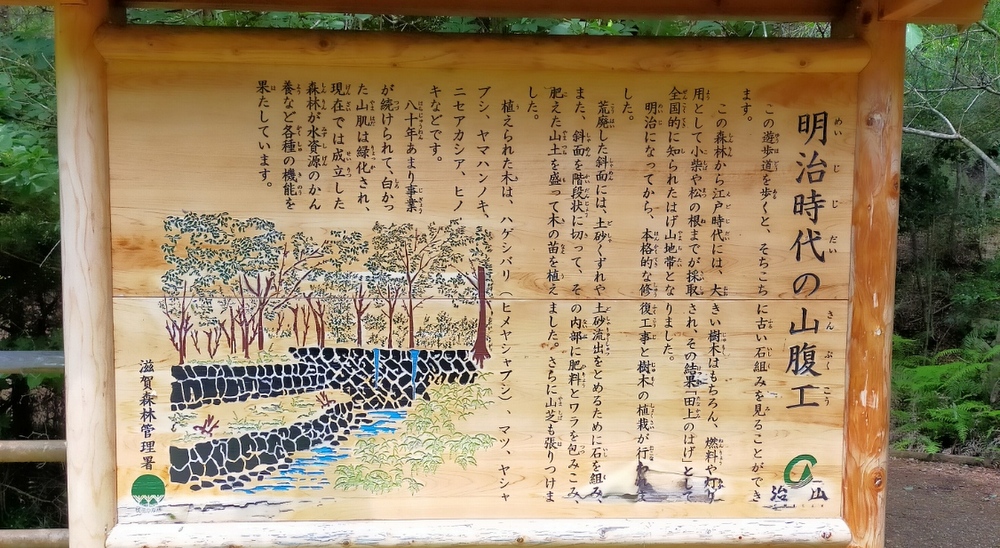 明治時代の山腹工
この遊歩道を歩くと、そちこちに古い石組みを見ることができ
ます。
この森林から江戸時代には、大きい樹木はもちろん、燃料や灯り
用として小柴や松の根までが採取され、その結果"田上のはげ"として
全国的に知られたはげ山地帯となりました。
明治になってから、本格的な修復工事と樹木の植栽が行
した。
荒廃した斜面には、土砂くずれや土砂流出をとめるために石を組み、
また、斜面を階段状に切って、その内部に肥料とワラを包みこみ、
肥えた山土を盛って木の苗を植えました。さらに山芝も張りつけま
した。
植えられた木は、ハゲシバリ（ヒメヤシャブシ）、マツ、ヤシャ
ブシ、ヤマハンノキ、
ニセアカシア、ヒノ
キなどです。
八十年あまり事業
が続けられて、白かっ
た山肌は緑化され、
現在では成立した
森林が水資源のかん
養など各種の機能を
果たしています。
滋賀森林管理署
治山